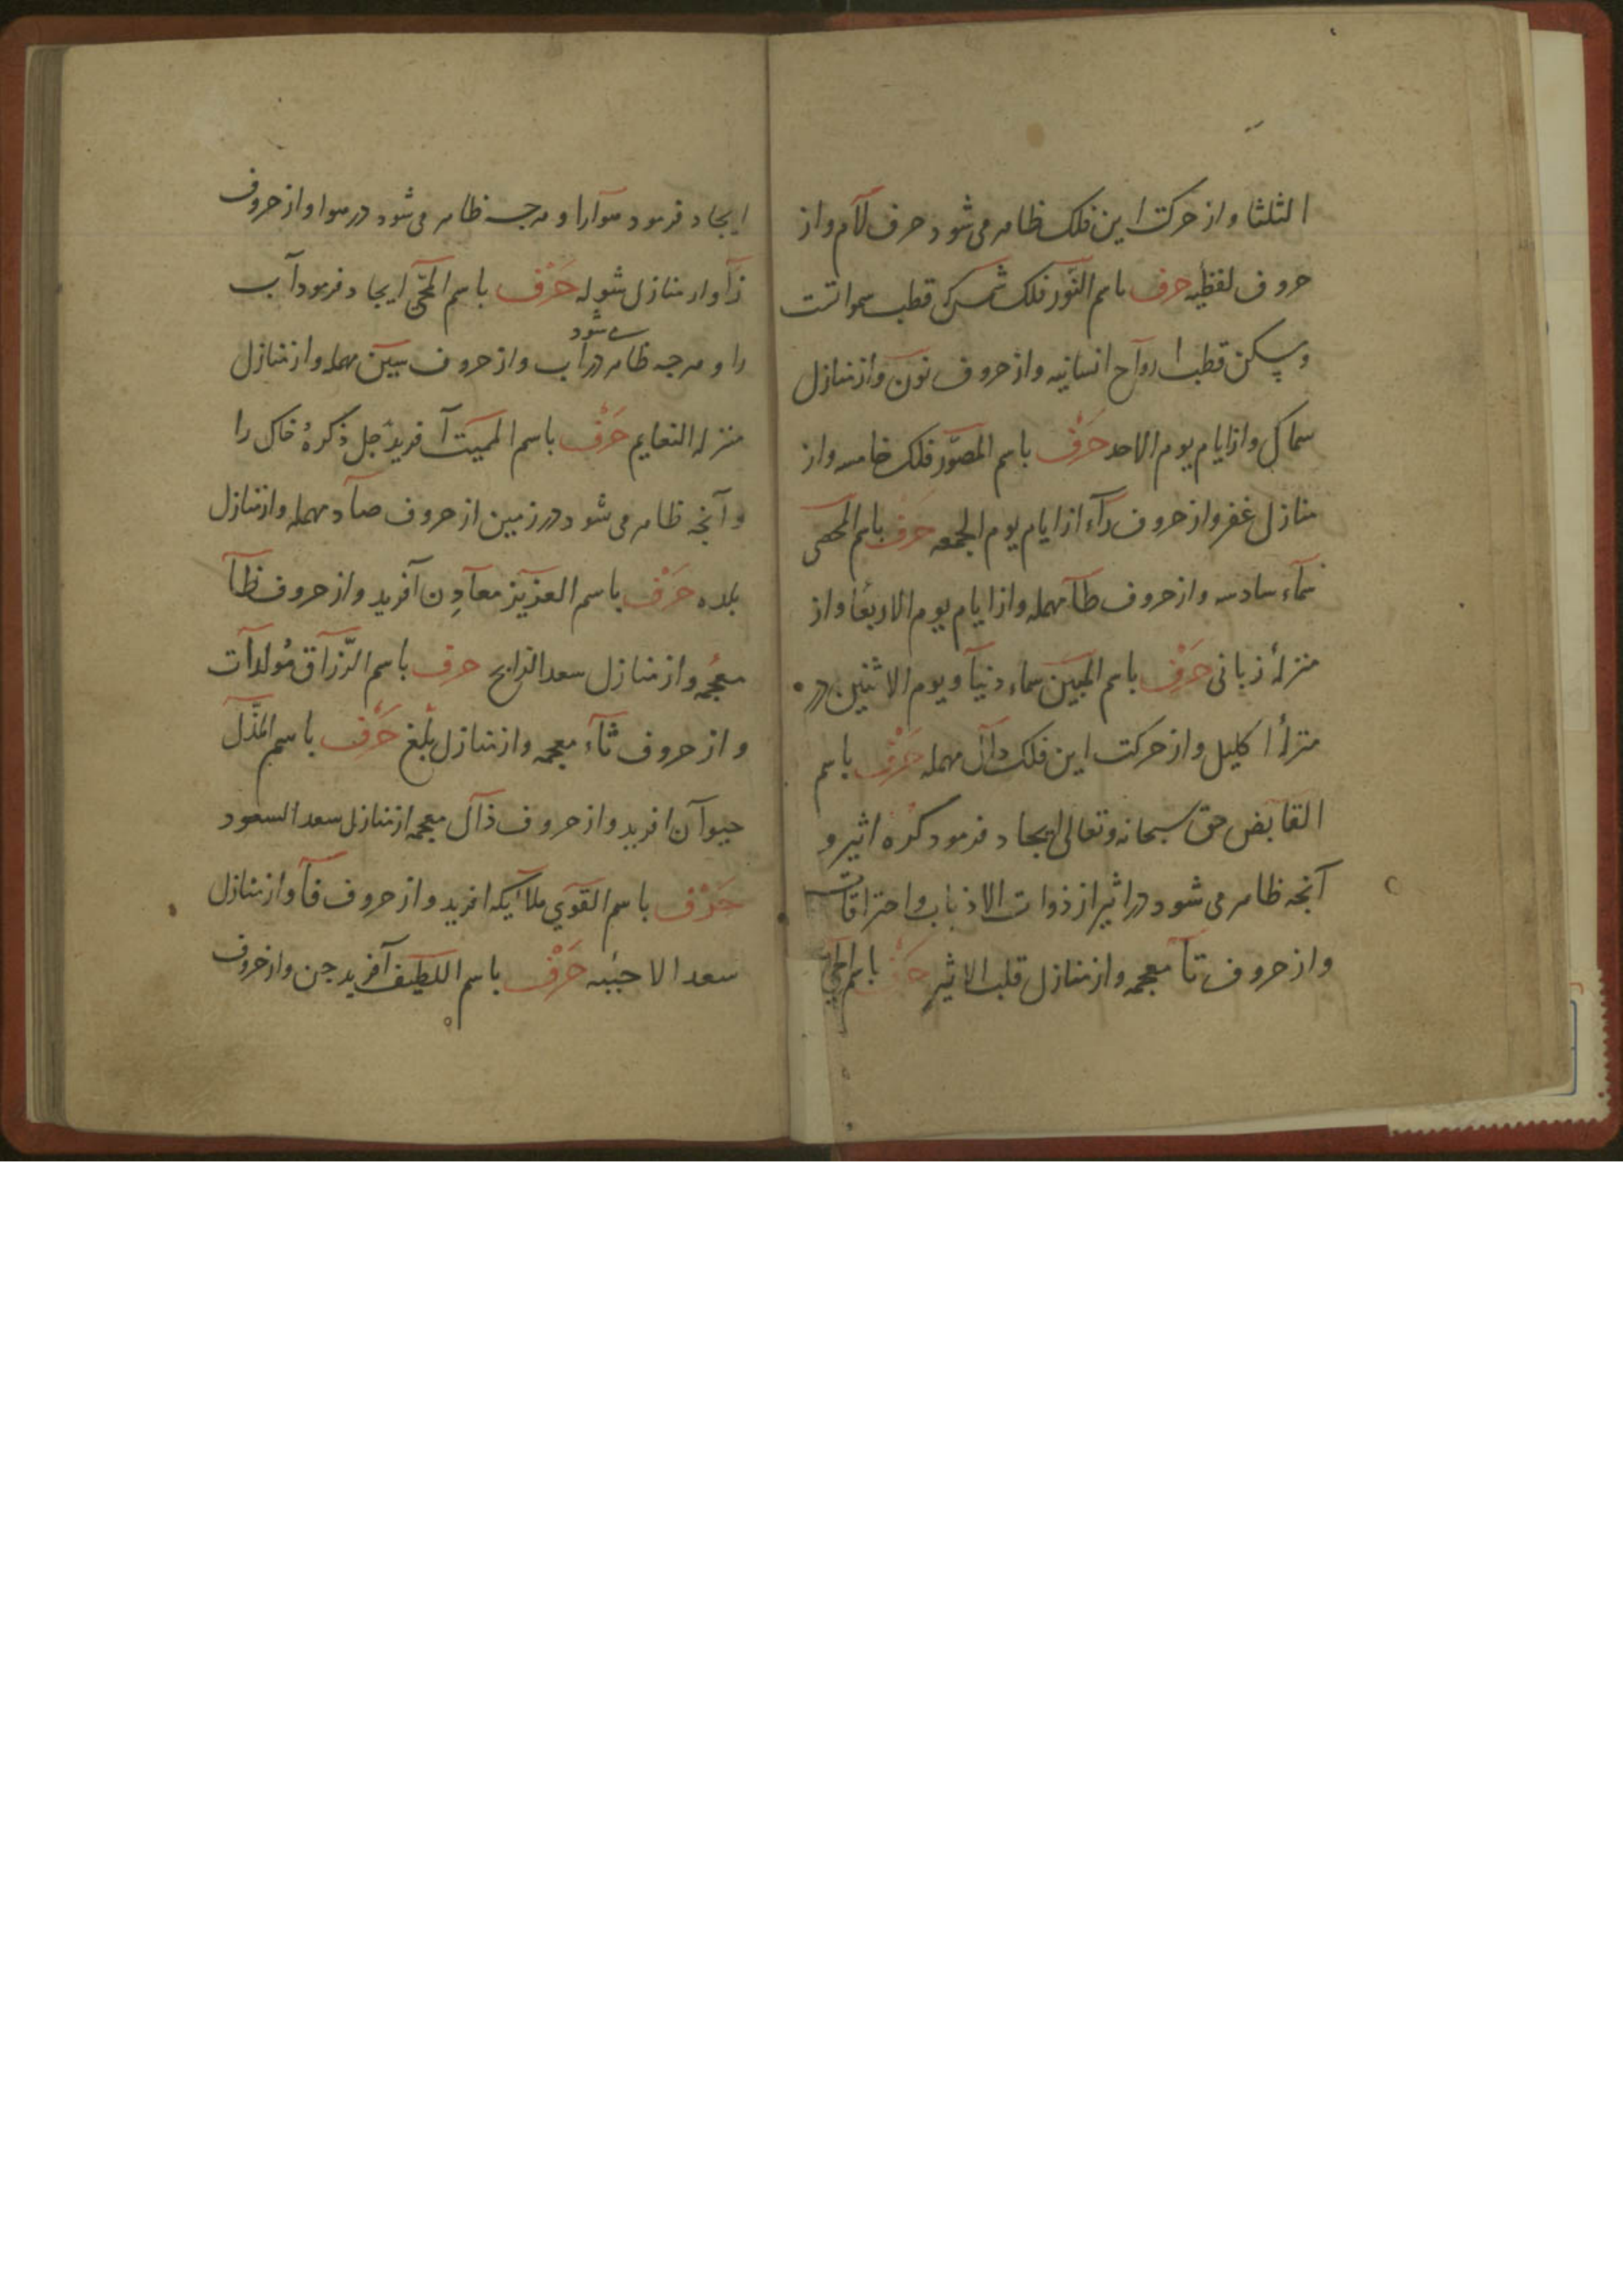 الثلثا و از حرکت این فلک ظاهر می شود حرف لام و از
حروف لفظیه حرف باسم النور فلک شمس که قطب سمواتست
و مسکن قطب ارواح انسانیه و از حروف نون و از منازل
سماک و از ایام یوم الاحد حرف باسم المصور فلک خامسه و از
منازل غفر و از حروف راء از ایام یوم الجمعه حرف باسم المحصی
سماء سادسه و از حروف طا مهمله و از ایام یوم الاربعا و از
منزلهٔ زبانی حرف باسم المبین سماء دنیا و یوم الاثنین در
منزلهٔ اکلیل و از حرکت این فلک دال مهمله حرف باسم
القابض حق سبحانه و تعالی ایجاد فرمود کره اثیر و
آنچه ظاهر می شود در اثیر از ذوات الاذناب و احتراقات
و از حروف تا معجمه و از منازل قلب الاثیر حرف باسم الحی
ایجاد فرمود هوا را و هرچه ظاهر می شود در هوا و از حروف
زا و از منازل شوله حرف باسم المحیی ایجاد فرمود آب
را و هرچه ظاهر می شود در اب و از حروف سین مهمله و از منازل
منزله النعایم حرف باسم الممیت آفرید جل ذکره خاک را
و آنچه ظاهر می شود در زمین از حروف صاد مهمله و از منازل
بلده حرف باسم العزیز معادن آفرید و از حروف ظا
معجمه و از منازل سعد الذابح حرف باسم الرزاق مولدات
و از حروف ثاء معجمه و از منازل بلغ حرف باسم المذل
حیوان افرید و از حروف ذال معجمه از منازل سعد السعود
حرف باسم القوی ملائکه افرید و از حروف فا و از منازل
سعد الاخبیه حرف باسم اللطیف آفرید جن و از حروف